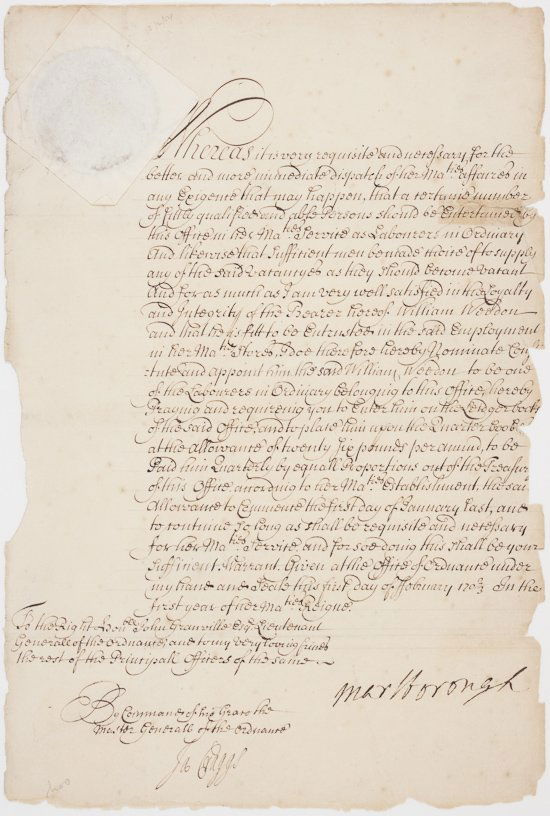 Whereas it is very requisite and necessary, for the
better and more immediate dispatch of her Ma.ties affaires in
any Exigence that may happen, that a certaine number
of fitly qualified and able Persons should be Entertained by
this Office in her Ma.ties Service as Labourers in Ordinary
And likewise that sufficient men be made choice of to supply
any of the said Vacancyes as they should become vacant
And for as much as I am very well satisfied in the Loyalty
and Integrity of the Bearer hereof William Weedon
and that he is fitt to be Entrusted in the said Employment
in her Ma.ties Stores. I doe therefore hereby Nominate Con
stitute and appoint him the said William Weedon to be one
of the Labourers in Ordinary belonging to this Office, hereby
Praying and requireing you to Enter him on the Ledger book
of the said Office, and to place him upon the Quarter Books
at the allowance of twenty six pounds per annum, to be
Paid him Quarterly by equall Proportions out of the Treasur
of this Office according to her Ma.ties Establishment, the said
Allowance to Commence the first day of January last, and
to continue so long as shall be requisite and necessary
for her Ma.ties Service, and for soe doing this shall be your
Sufficient Warrant. Given at the Office of Ordnance under
my hand and Seale this first day of ffebruary 1702/3 In the
first year of her Ma.ties Reigne
To the Right Hon.ble John Granville Esq.r Lieutenant
Generall of the Ordnance, and to my very loving friends
the rest of the Principall Officers of the same
Marlborough
By Command of his Grace the
Master Generall of the Ordnance
Ja Craggs